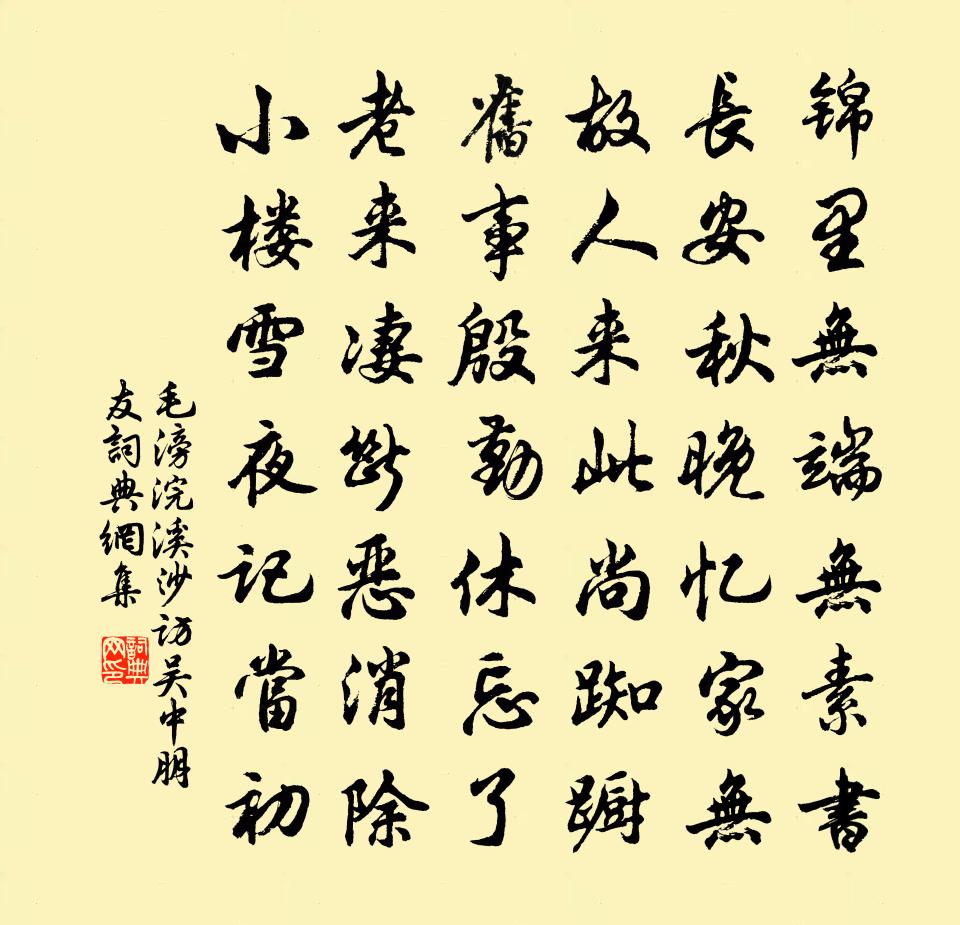 锦里無端無素書
長安秋晚忆家無
故人来此尚踟蹰
舊事殷勤休忘了
老来凄断恶消除
小楼雪夜记當初
毛滂浣溪沙访吴中朋
友詞典網集
詞典
网印